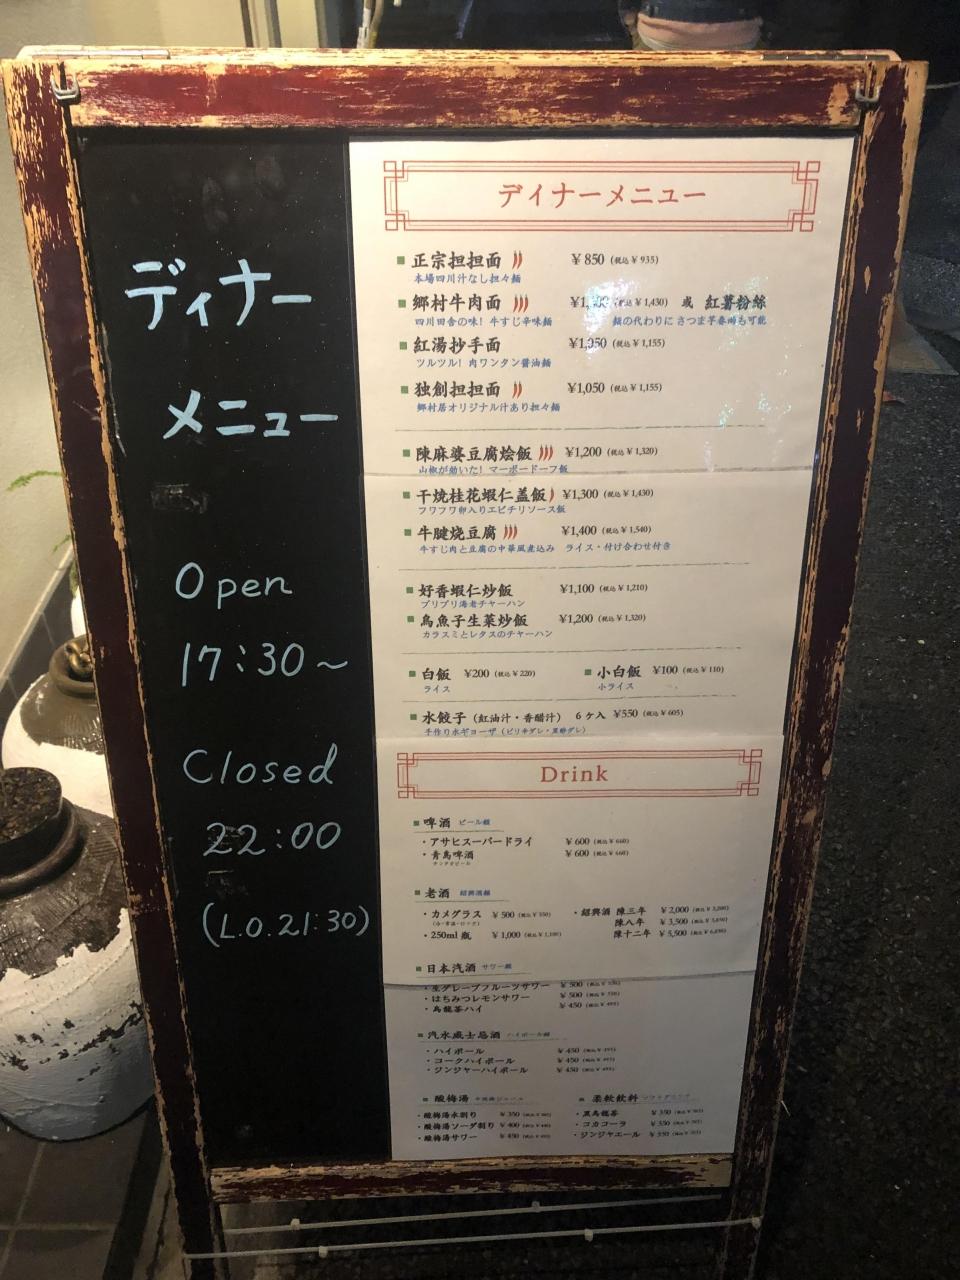 ディナー
メニュー
Open
17:30～
Closed
22:00
(L.O. 21:30)
デイナーメニュー
正宗担担面 ¥850 (税込¥935)
本場四川汁なし担々麺
郷村牛肉面 (税込¥1,430) 或 紅薯粉絲
四川田舎の味! 牛すじ辛味麺 麺の代わりに さつま芋春雨も可能
紅湯抄手面 ¥1,050 (税込¥1,155)
ツルツル! 肉ワンタン醤油麺
独創担担面 ¥1,050 (税込¥1,155)
郷村居オリジナル汁あり担々麺
陳麻婆豆腐烩飯 ¥1,200 (税込¥1,320)
山椒が効いた! マーボードーフ飯
干焼桂花蝦仁盖飯 ¥1,300 (税込¥1,430)
フワフワ卵入りエビチリソース飯
牛腱焼豆腐 ¥1,400 (税込¥1,540)
牛すじ肉と豆腐の中華風煮込み ライス・付け合わせ付き
好香蝦仁炒飯 ¥1,100 (税込¥1,210)
プリプリ海老チャーハン
烏魚子生菜炒飯 ¥1,200 (税込¥1,320)
カラスミとレタスのチャーハン
白飯 ¥200 (税込¥220) 小白飯 ¥100 (税込¥110)
ライス 小ライス
水餃子 (紅油汁・香醋汁) 6ケ入 ¥550 (税込¥605)
手作り水ギョーザ (ピリ辛ダレ・黒酢ダレ)
Drink
啤酒 ビール類
・アサヒスーパードライ ¥600 (税込¥660)
・青島啤酒 ¥600 (税込¥660)
チンタオビール
老酒 紹興酒類
・カメグラス ¥500 (税込¥550) ・紹興酒 陳三年 ¥2,000 (税込¥2,200)
陳八年 ¥3,500 (税込¥3,850)
・250ml瓶 ¥1,000 (税込¥1,100) 陳十二年 ¥5,500 (税込¥6,050)
日本汽酒 サワー類
・生グレープフルーツサワー ¥500 (税込¥550)
・はちみつレモンサワー ¥500 (税込¥550)
・烏龍茶ハイ ¥450 (税込¥495)
汽水威士忌酒 ハイボール類
・ハイボール ¥450 (税込¥495)
・コークハイボール ¥450 (税込¥495)
・ジンジャーハイボール ¥450 (税込¥495)
酸梅湯 柔軟飲料 ソフトドリンク
・酸梅湯水割り ¥350 ・黒烏龍茶 ¥350
・酸梅湯ソーダ割り ¥400 ・コカコーラ ¥350
・酸梅湯サワー ¥450 ・ジンジャエール ¥350